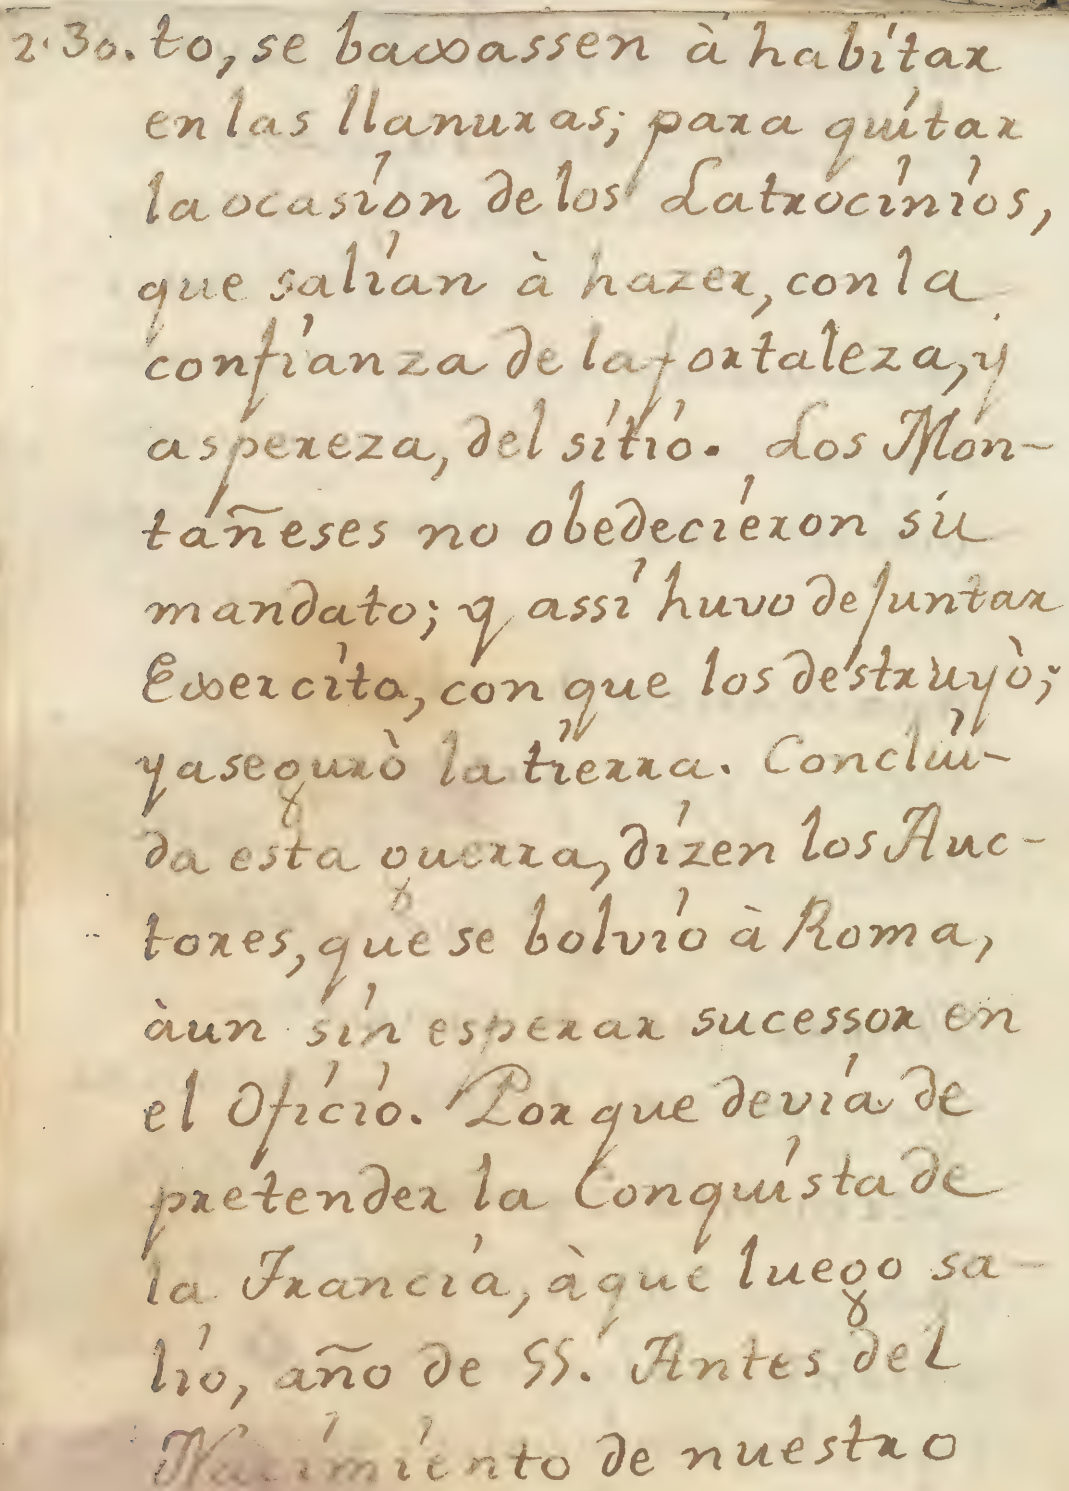 2.30. to, se baxassen à habitar
en las llanuras; para quitar
la ocasion de los Latrocinios,
que salian à hazer, con la
confianza de la fortaleza, y
aspereza, del sitio. Los Mon-
tañeses no obedecieron su
mandato; y assi huvo de juntar
Exercito, con que los destruyò;
y asegurò la tierra. Conclui-
da esta guerra, dizen los Auc-
tores, que se bolvio à Roma,
àun sin esperar sucessor en
el Oficio. Por que devia de
pretender la Conquista de
la Francia, à que luego sa-
lio, año de 55. Antes del
Nacimiento de nuestro